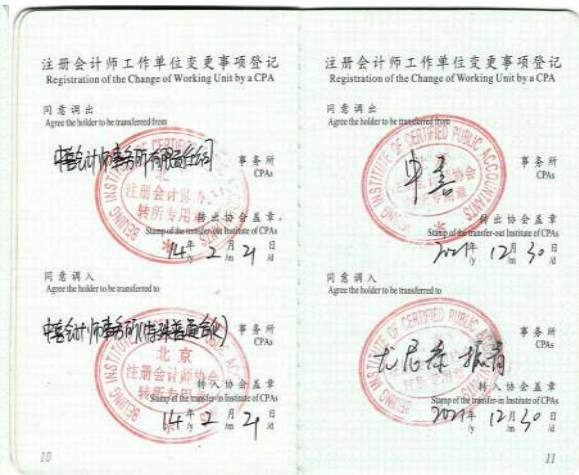 注册会计师工作单位变更事项登记
Registration of the Change of Working Unit by a CPA
同意调出
Agree the holder to be transferred from
中喜会计师事务所有限责任公司
事务所
CPAs
BEIJING INSTITUTE OF CERTIFIED PUBLIC ACCOUNTANTS
注册会计师协会
转所专用章
转出协会盖章
Stamp of the transfer-out Institute of CPAs
14年 2月 21日
/y /m /d
同意调入
Agree the holder to be transferred to
中喜会计师事务所(特殊普通合伙)
事务所
CPAs
北京
注册会计师协会
转所专用章
转入协会盖章
Stamp of the transfer-in Institute of CPAs
14年 2月 21日
/y /m /d
10
注册会计师工作单位变更事项登记
Registration of the Change of Working Unit by a CPA
同意调出
Agree the holder to be transferred from
中喜
事务所
CPAs
BEIJING INSTITUTE OF CERTIFIED PUBLIC ACCOUNTANTS
转出协会盖章
Stamp of the transfer-out Institute of CPAs
2021年 12月 30日
/y /m /d
同意调入
Agree the holder to be transferred to
尤尼泰 振青
事务所
CPAs
转入协会盖章
Stamp of the transfer-in Institute of CPAs
2021年 12月 30日
/y /m /d
11